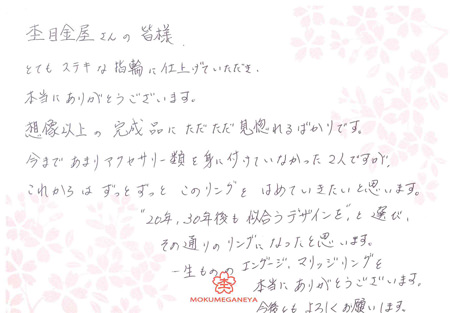 杢目金屋さんの皆様
とても ステキな指輪に仕上げていただき、
本当にありがとうございます。
想像以上の完成品に ただただ 見惚れるばかりです。
今まで あまりアクセサリー類を身に付けていなかった2人ですが、
これからは ずっとずっと このリングを はめていきたいと思います。
"20年、30年後も似合うデザインを"と選び、
その通りのリングになったと思います。
一生ものの エンゲージ、マリッジリングを
本当にありがとうございます。
今後とも よろしくお願いします。
MOKUMEGANEYA